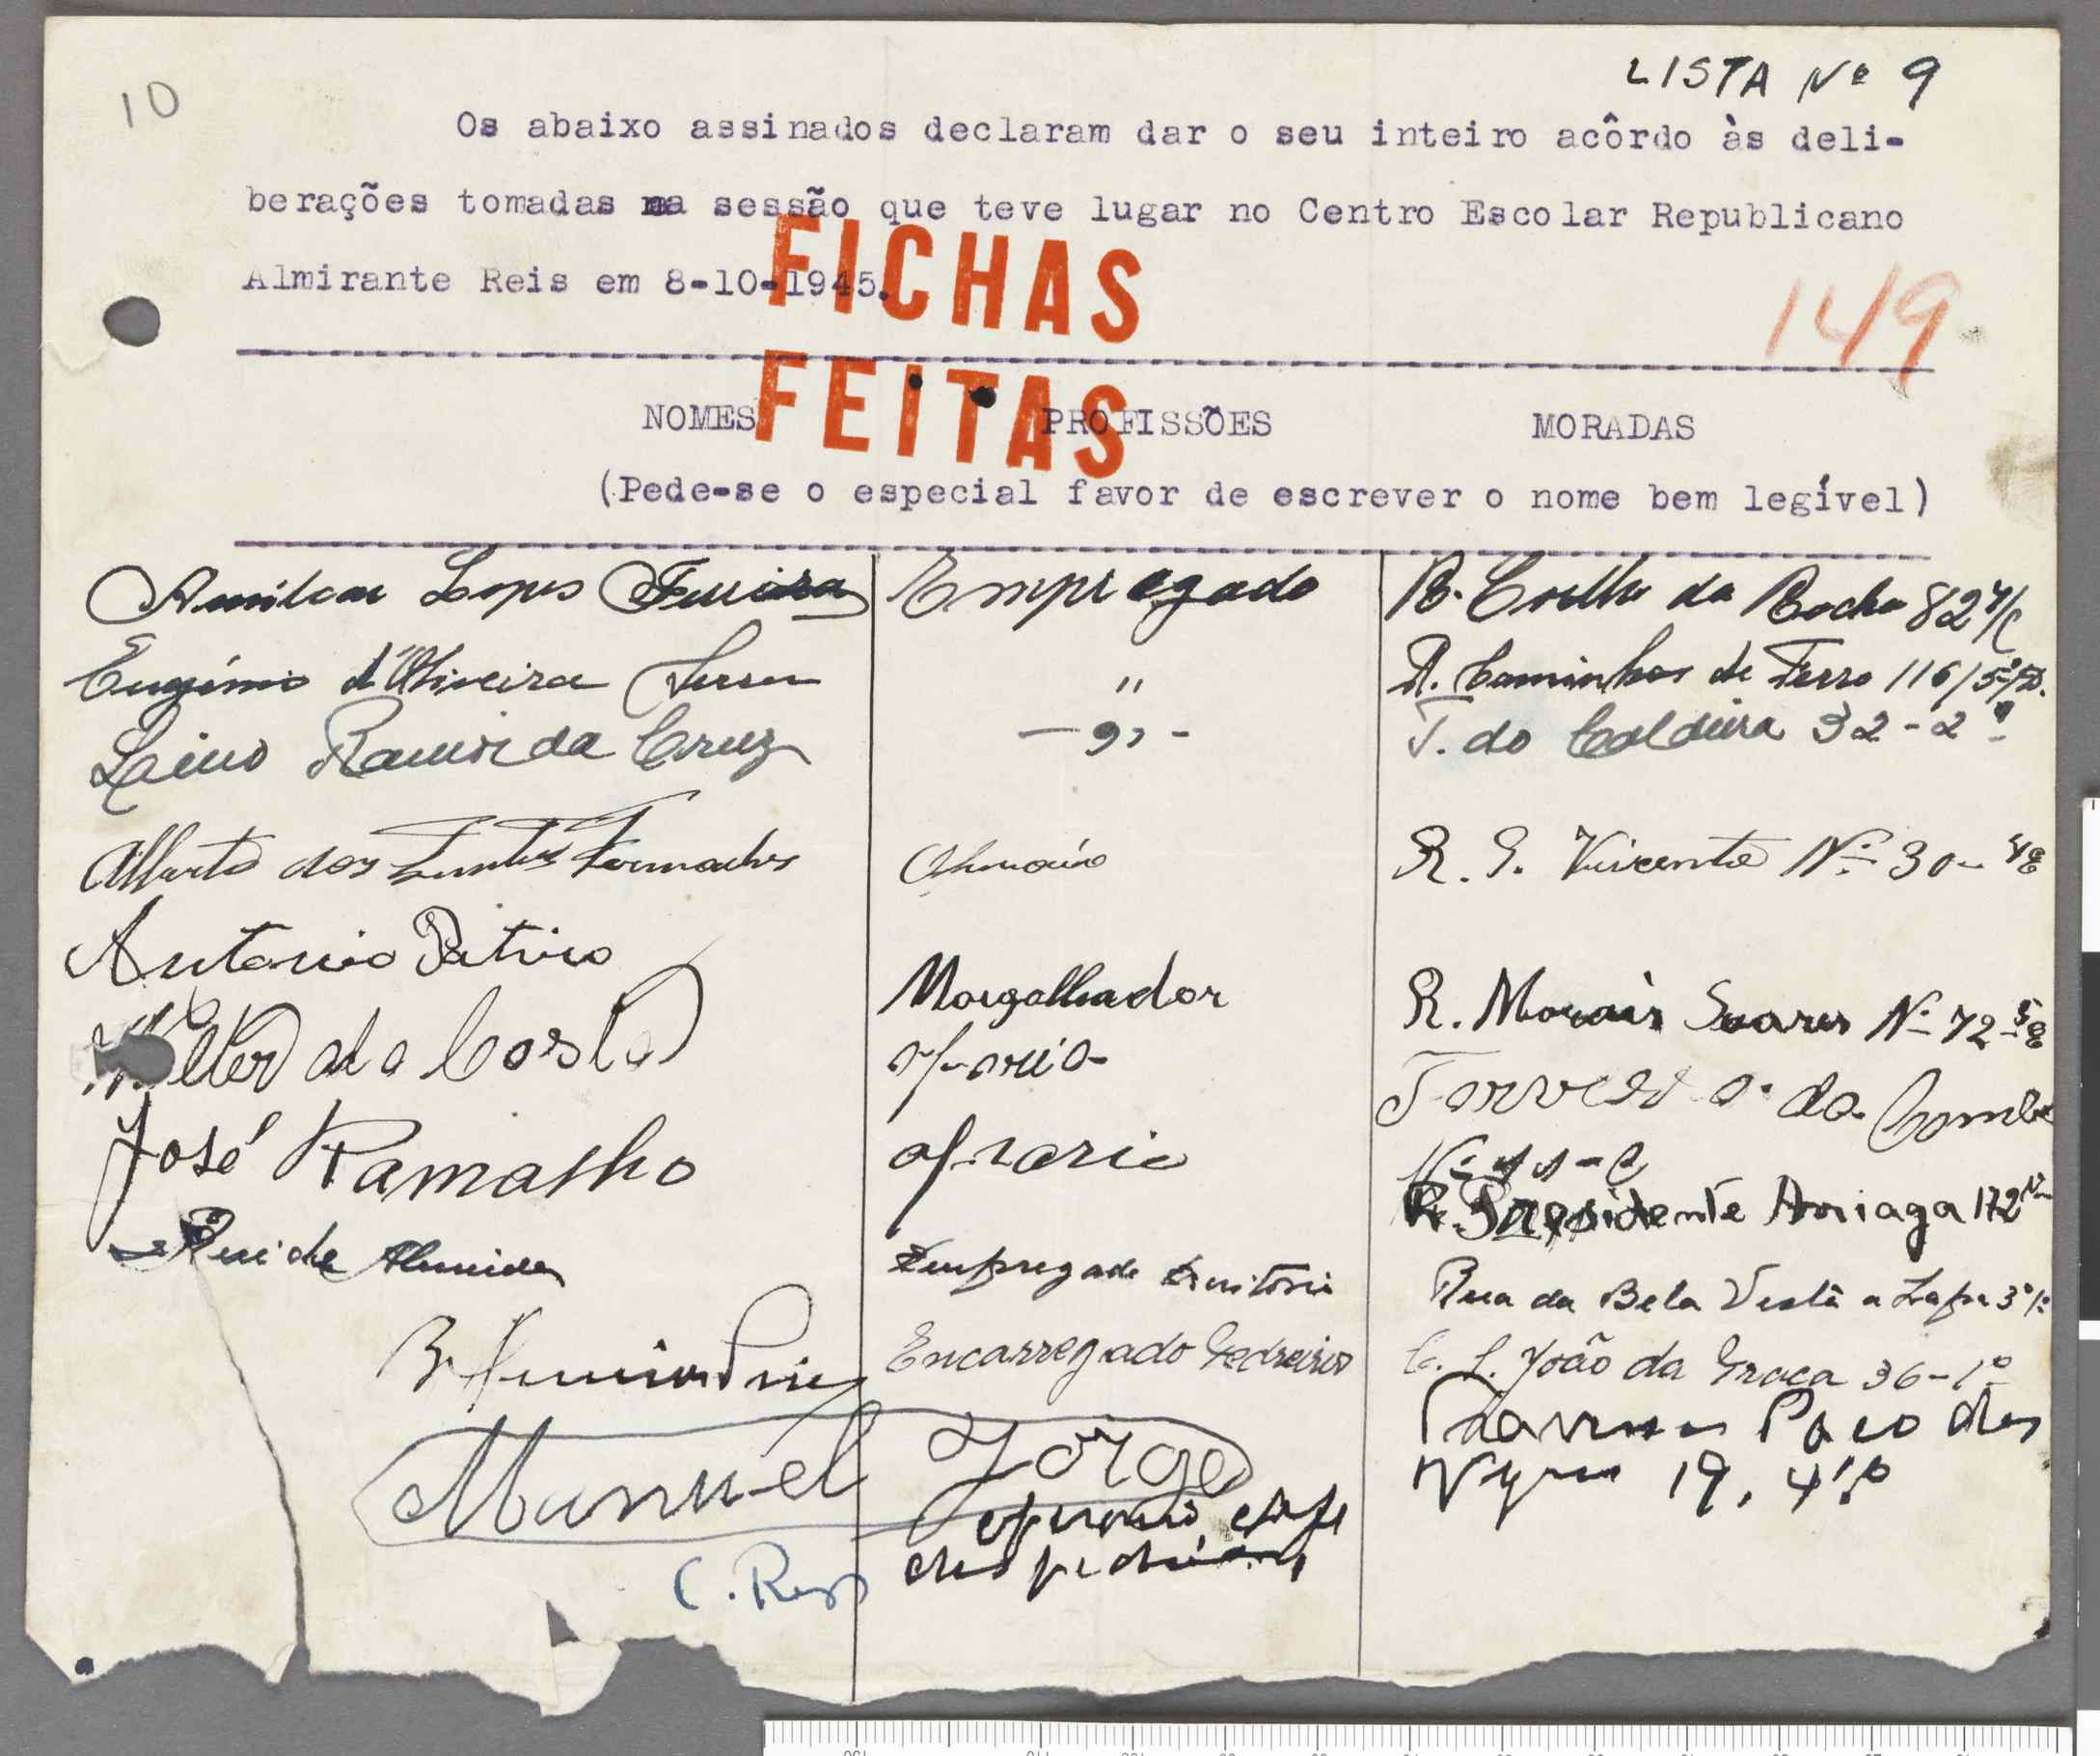 LISTA Nº 9
10
Os abaixo assinados declaram dar o seu inteiro acôrdo às deli-
berações tomadas na sessão que teve lugar no Centro Escolar Republicano
Almirante Reis em 8-10-1945.
FICHAS
149
FEITAS
NOMES PROFISSÕES MORADAS
(Pede-se o especial favor de escrever o nome bem legível)
Amilcar Lopes Ferreira Empregado R. Coelho da Rocha 82 r/c
Eugénio d'Oliveira " R. Caminhos de Ferro 116/5º/D.
Ramos da Cruz - " - T. do Caldeira 32-2º
Alberto dos Santos Fernandes R. S. Vicente Nº 30
Antonio Patricio Margalhador R. Morais Soares Nº 72
da Costa
José Ramalho R. Presidente Arriaga 172
Rui de Almeida Empregado Escritório Rua da Bela Vista a Lapa
Encarregado Pedreiros C. S. João da Graça 36-1º
Manuel Jorge
19, 4º
C. Reis